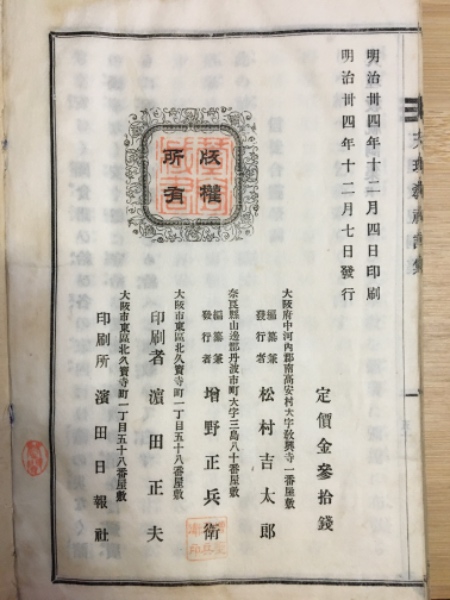 明治卅四年十二月四日印刷
明治卅四年十二月七日發行
版權
所有
定價金參拾錢
大阪府中河內郡南高安村大字敎興寺一番屋敷
編纂兼
發行者
松村吉太郎
奈良縣山邊郡丹波市町大字三島八十番屋敷
編纂兼
發行者
增野正兵衛
大阪市東區北久寳寺町一丁目五十八番屋敷
印刷者 濵田正夫
大阪市東區北久寳寺町一丁目五十八番屋敷
印刷所 濵田日報社